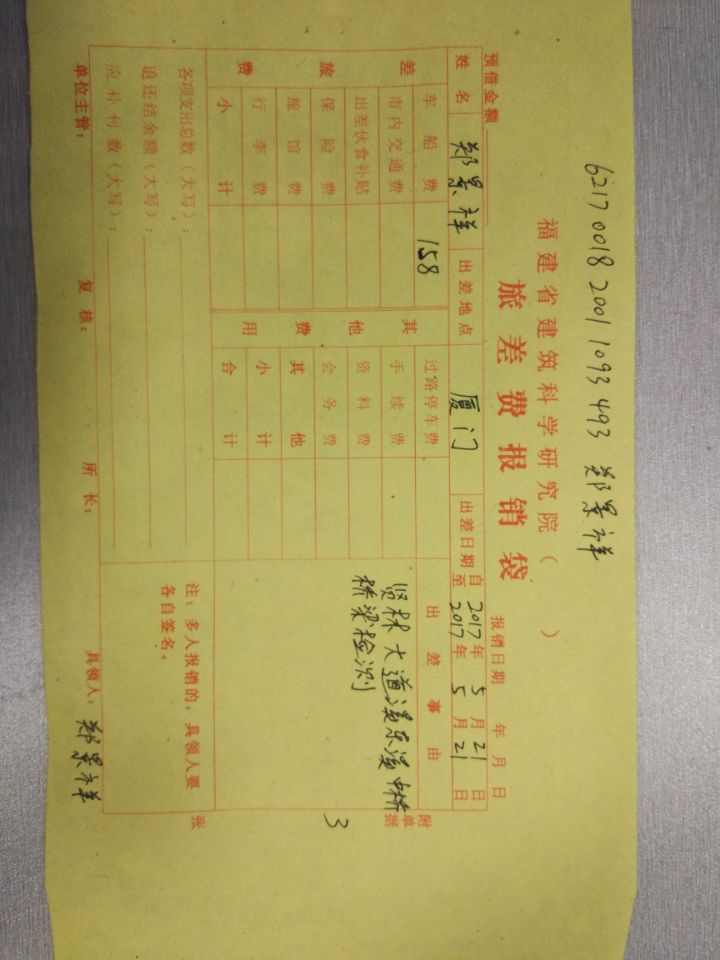 6217 0018 2001 1093 493 郑景祥
福建省建筑科学研究院（ ）
旅差费报销袋
预借金额
报销日期 年 月 日
姓名 郑景祥 出差地点 厦门 出差日期 自 2017年 5月 21日
至 2017年 5月 21日
差旅费 车船费 158 其他费用 过路停车费 出差事由
市内交通费 手续费 贤林大道溪东溪中桥
出差伙食补贴 资料费 桥梁检测
保险费 会务费
旅馆费 其他
行李费 小计
小计 合计
附单据 3 张
各项支出总数（大写）：
退还结余额（大写）：
应补何数（大写）：
注：多人报销的，具领人要
各自签名。
单位主管： 复核： 所长： 具领人：郑景祥